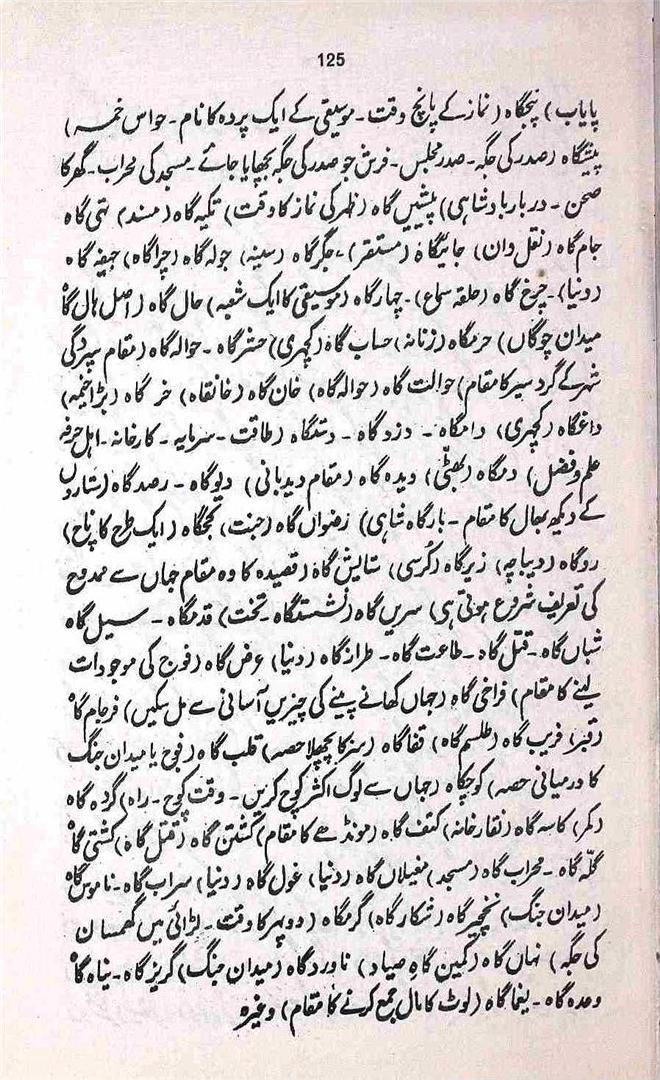 125
پایاب) پنجگاہ (نماز کے پانچ وقت۔ موسیقی کے ایک پردہ کا نام۔ حواس خمسہ)
پیشگاہ (صدر کی جگہ۔ صدر مجلس۔ فرش جو صدر کی جگہ بچھایا جائے۔ مسجد کی محراب۔ گھر کا
صحن۔ دربار بادشاہی) پیشیں گاہ (ظہر کی نماز کا وقت) تکیہ گاہ (مسند) تہی گاہ
جام گاہ (نقل وان) جائیگاہ (مستقر)۔ جگر گاہ (سینہ) جولہ گاہ (چراگاہ) جیفہ گاہ
(دنیا)۔ چرخ گاہ (حلقہ سماع)۔ چہار گاہ (موسیقی کا ایک شعبہ) حال گاہ (اصل ہال گاہ
میدان چوگاں) حرمگاہ (زنانہ) حساب گاہ (کچہری) حشر گاہ۔ حوالہ گاہ (مقام سپردگی
شہر کے گرد سیر کا مقام) حوالت گاہ (حوالہ گاہ) خان گاہ (خانقاہ) خر گاہ (بڑا خیمہ)
داغگاہ (کچہری) دامگاہ۔ دزد گاہ۔ دستگاہ (طاقت۔ سرمایہ۔ کارخانہ۔ اہل حرفہ
علم و فضل) دمگاہ (بھٹی) دیدہ گاہ (مقام دیدبانی) دیوگاہ۔ رصد گاہ (ستاروں
کے دیکھ بھال کا مقام۔ بارگاہ شاہی) رضواں گاہ (جنت) کجگاہ (ایک طرح کا تاج)
روگاہ (دیباچہ) زیرگاہ (کرسی) ستایش گاہ (قصیدہ کا وہ مقام جہاں سے ممدوح
کی تعریف شروع ہوتی ہی) سریں گاہ (نشستگاہ۔ تخت) قدمگاہ۔ سیل گاہ
شباں گاہ۔ قتل گاہ۔ طاعت گاہ۔ طراز گاہ (دنیا) عرض گاہ (فوج کی موجودات
لینے کا مقام) فراخی گاہ (جہاں کھانے پینے کی چیزیں آسانی سے مل سکیں) فرجام گاہ
(قبر) فریب گاہ (طلسم گاہ) قفا گاہ (سر کا پچھلا حصہ) قلب گاہ (فوج یا میدان جنگ
کا درمیانی حصہ) کوچگاہ (جہاں سے لوگ اکثر کوچ کریں۔ وقت کوچ۔ راہ) گردہ گاہ
(کمر) کاسہ گاہ (نقار خانہ) کتف گاہ (مونڈھے کا مقام) کشتن گاہ (قتل گاہ) کشتی گاہ
گلّہ گاہ۔ محراب گاہ (مسجد) مغیلاں گاہ (دنیا) غول گاہ (دنیا) سراب گاہ۔ ناموس گاہ
(میدان جنگ) نخچیر گاہ (شکار گاہ) گرمگاہ (دوپہر کا وقت۔ لڑائی میں گھمسان
کی جگہ) نہاں گاہ (کمین گاہِ صیاد) ناورد گاہ (میدان جنگ) گریز گاہ۔ پناہ گاہ
وعدہ گاہ۔ یغما گاہ (لوٹ کا مال جمع کرنے کا مقام) وغیرہ